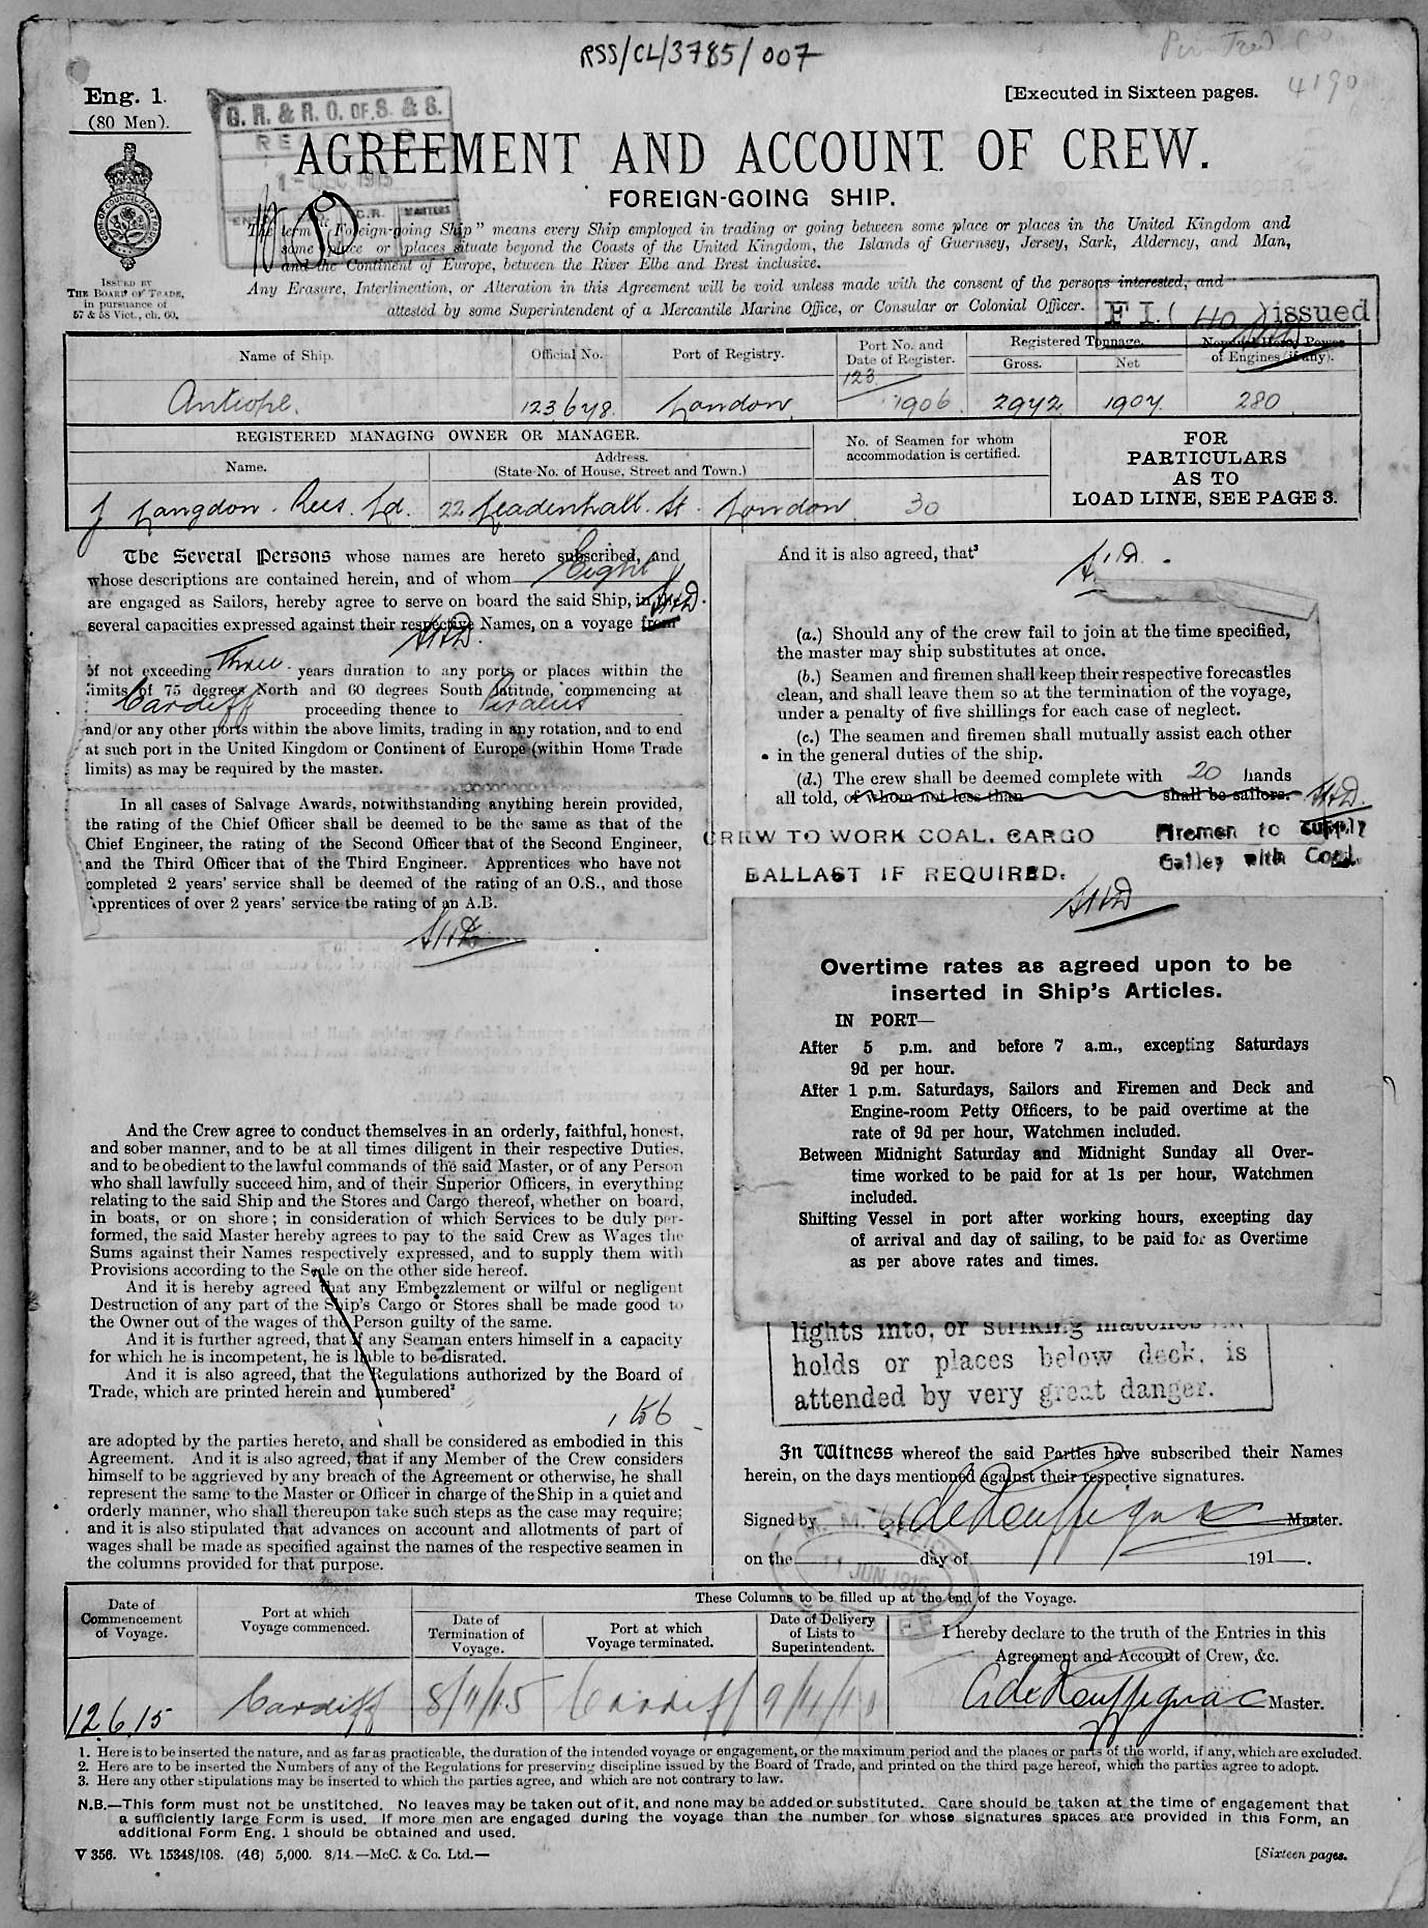 RSS/CL/3785/007
4190
Eng. 1.
(80 Men).
[Executed in Sixteen pages.
G. R. & R. O. OF S. & S.
AGREEMENT AND ACCOUNT OF CREW.
FOREIGN-GOING SHIP.
The term "Foreign-going Ship" means every Ship employed in trading or going between some place or places in the United Kingdom and
some place or places situate beyond the Coasts of the United Kingdom, the Islands of Guernsey, Jersey, Sark, Alderney, and Man,
and the Continent of Europe, between the River Elbe and Brest inclusive.
Any Erasure, Interlineation, or Alteration in this Agreement will be void unless made with the consent of the persons interested, and
attested by some Superintendent of a Mercantile Marine Office, or Consular or Colonial Officer.
ISSUED BY
THE BOARD OF TRADE,
in pursuance of
57 & 58 Vict., ch. 60.
F I. ( Ho ) issued
Name of Ship.
Official No.
Port of Registry.
Port No. and
Date of Register.
Registered Tonnage.
Gross.
Net
Nominal Horse Power
of Engines (if any).
Antiope.
123648.
London.
123
1906
2942
1904
280
REGISTERED MANAGING OWNER OR MANAGER.
Name.
Address.
(State No. of House, Street and Town.)
No. of Seamen for whom
accommodation is certified.
FOR
PARTICULARS
AS TO
LOAD LINE, SEE PAGE 3.
J Langdon. Rees. Ld.
22 Leadenhall. St. London
30
The Several Persons whose names are hereto subscribed, and
whose descriptions are contained herein, and of whom Eight
are engaged as Sailors, hereby agree to serve on board the said Ship, in the
several capacities expressed against their respective Names, on a voyage from
of not exceeding Three years duration to any ports or places within the
limits of 75 degrees North and 60 degrees South latitude, commencing at
Cardiff proceeding thence to Piraeus
and/or any other ports within the above limits, trading in any rotation, and to end
at such port in the United Kingdom or Continent of Europe (within Home Trade
limits) as may be required by the master.
In all cases of Salvage Awards, notwithstanding anything herein provided,
the rating of the Chief Officer shall be deemed to be the same as that of the
Chief Engineer, the rating of the Second Officer that of the Second Engineer,
and the Third Officer that of the Third Engineer. Apprentices who have not
completed 2 years' service shall be deemed of the rating of an O.S., and those
apprentices of over 2 years' service the rating of an A.B.
And the Crew agree to conduct themselves in an orderly, faithful, honest,
and sober manner, and to be at all times diligent in their respective Duties,
and to be obedient to the lawful commands of the said Master, or of any Person
who shall lawfully succeed him, and of their Superior Officers, in everything
relating to the said Ship and the Stores and Cargo thereof, whether on board,
in boats, or on shore; in consideration of which Services to be duly per-
formed, the said Master hereby agrees to pay to the said Crew as Wages the
Sums against their Names respectively expressed, and to supply them with
Provisions according to the Scale on the other side hereof.
And it is hereby agreed that any Embezzlement or wilful or negligent
Destruction of any part of the Ship's Cargo or Stores shall be made good to
the Owner out of the wages of the Person guilty of the same.
And it is further agreed, that if any Seaman enters himself in a capacity
for which he is incompetent, he is liable to be disrated.
And it is also agreed, that the Regulations authorized by the Board of
Trade, which are printed herein and numbered²
1 5 6
are adopted by the parties hereto, and shall be considered as embodied in this
Agreement. And it is also agreed, that if any Member of the Crew considers
himself to be aggrieved by any breach of the Agreement or otherwise, he shall
represent the same to the Master or Officer in charge of the Ship in a quiet and
orderly manner, who shall thereupon take such steps as the case may require;
and it is also stipulated that advances on account and allotments of part of
wages shall be made as specified against the names of the respective seamen in
the columns provided for that purpose.
And it is also agreed, that³
(a.) Should any of the crew fail to join at the time specified,
the master may ship substitutes at once.
(b.) Seamen and firemen shall keep their respective forecastles
clean, and shall leave them so at the termination of the voyage,
under a penalty of five shillings for each case of neglect.
(c.) The seamen and firemen shall mutually assist each other
in the general duties of the ship.
(d.) The crew shall be deemed complete with 20 hands
all told, of whom not less than shall be sailors.
CREW TO WORK COAL, CARGO
BALLAST IF REQUIRED.
Firemen to supply
Galley with Coal.
Overtime rates as agreed upon to be
inserted in Ship's Articles.
IN PORT—
After 5 p.m. and before 7 a.m., excepting Saturdays
9d per hour.
After 1 p.m. Saturdays, Sailors and Firemen and Deck and
Engine-room Petty Officers, to be paid overtime at the
rate of 9d per hour, Watchmen included.
Between Midnight Saturday and Midnight Sunday all Over-
time worked to be paid for at 1s per hour, Watchmen
included.
Shifting Vessel in port after working hours, excepting day
of arrival and day of sailing, to be paid for as Overtime
as per above rates and times.
lights into, or striking matches in
holds or places below deck, is
attended by very great danger.
In Witness whereof the said Parties have subscribed their Names
herein, on the days mentioned against their respective signatures.
Signed by Master.
on the day of 191 .
Date of
Commencement
of Voyage.
Port at which
Voyage commenced.
These Columns to be filled up at the end of the Voyage.
Date of
Termination of
Voyage.
Port at which
Voyage terminated.
Date of Delivery
of Lists to
Superintendent.
I hereby declare to the truth of the Entries in this
Agreement and Account of Crew, &c.
Master.
12.6.15
Cardiff
8/11/15
Cardiff
1. Here is to be inserted the nature, and as far as practicable, the duration of the intended voyage or engagement, or the maximum period and the places or parts of the world, if any, which are excluded.
2. Here are to be inserted the Numbers of any of the Regulations for preserving discipline issued by the Board of Trade, and printed on the third page hereof, which the parties agree to adopt.
3. Here any other stipulations may be inserted to which the parties agree, and which are not contrary to law.
N.B.—This form must not be unstitched. No leaves may be taken out of it, and none may be added or substituted. Care should be taken at the time of engagement that
a sufficiently large Form is used. If more men are engaged during the voyage than the number for whose signatures spaces are provided in this Form, an
additional Form Eng. 1 should be obtained and used.
V 356. Wt. 15348/108. (46) 5,000. 8/14.—McC. & Co. Ltd.—
[Sixteen pages.